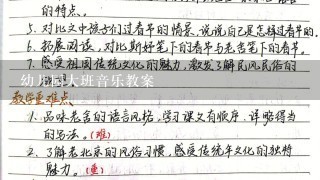 的特点。
5. 对比文中孩子们过春节的情景,说说自己是怎样过春节的.
6. 拓展阅读,对比斯好笔下的春节与老舍笔下的春节。
7. 感受祖国传统文化的魅力,激发了解民风民俗的
幼儿园大班音乐教案
教学重难点
1. 品味老舍的语言风格,学习课文有顺序、详略得当
的写法。(难)
2. 了解老北京的风俗习惯,感受传统年文化的独特
魅力。(重)